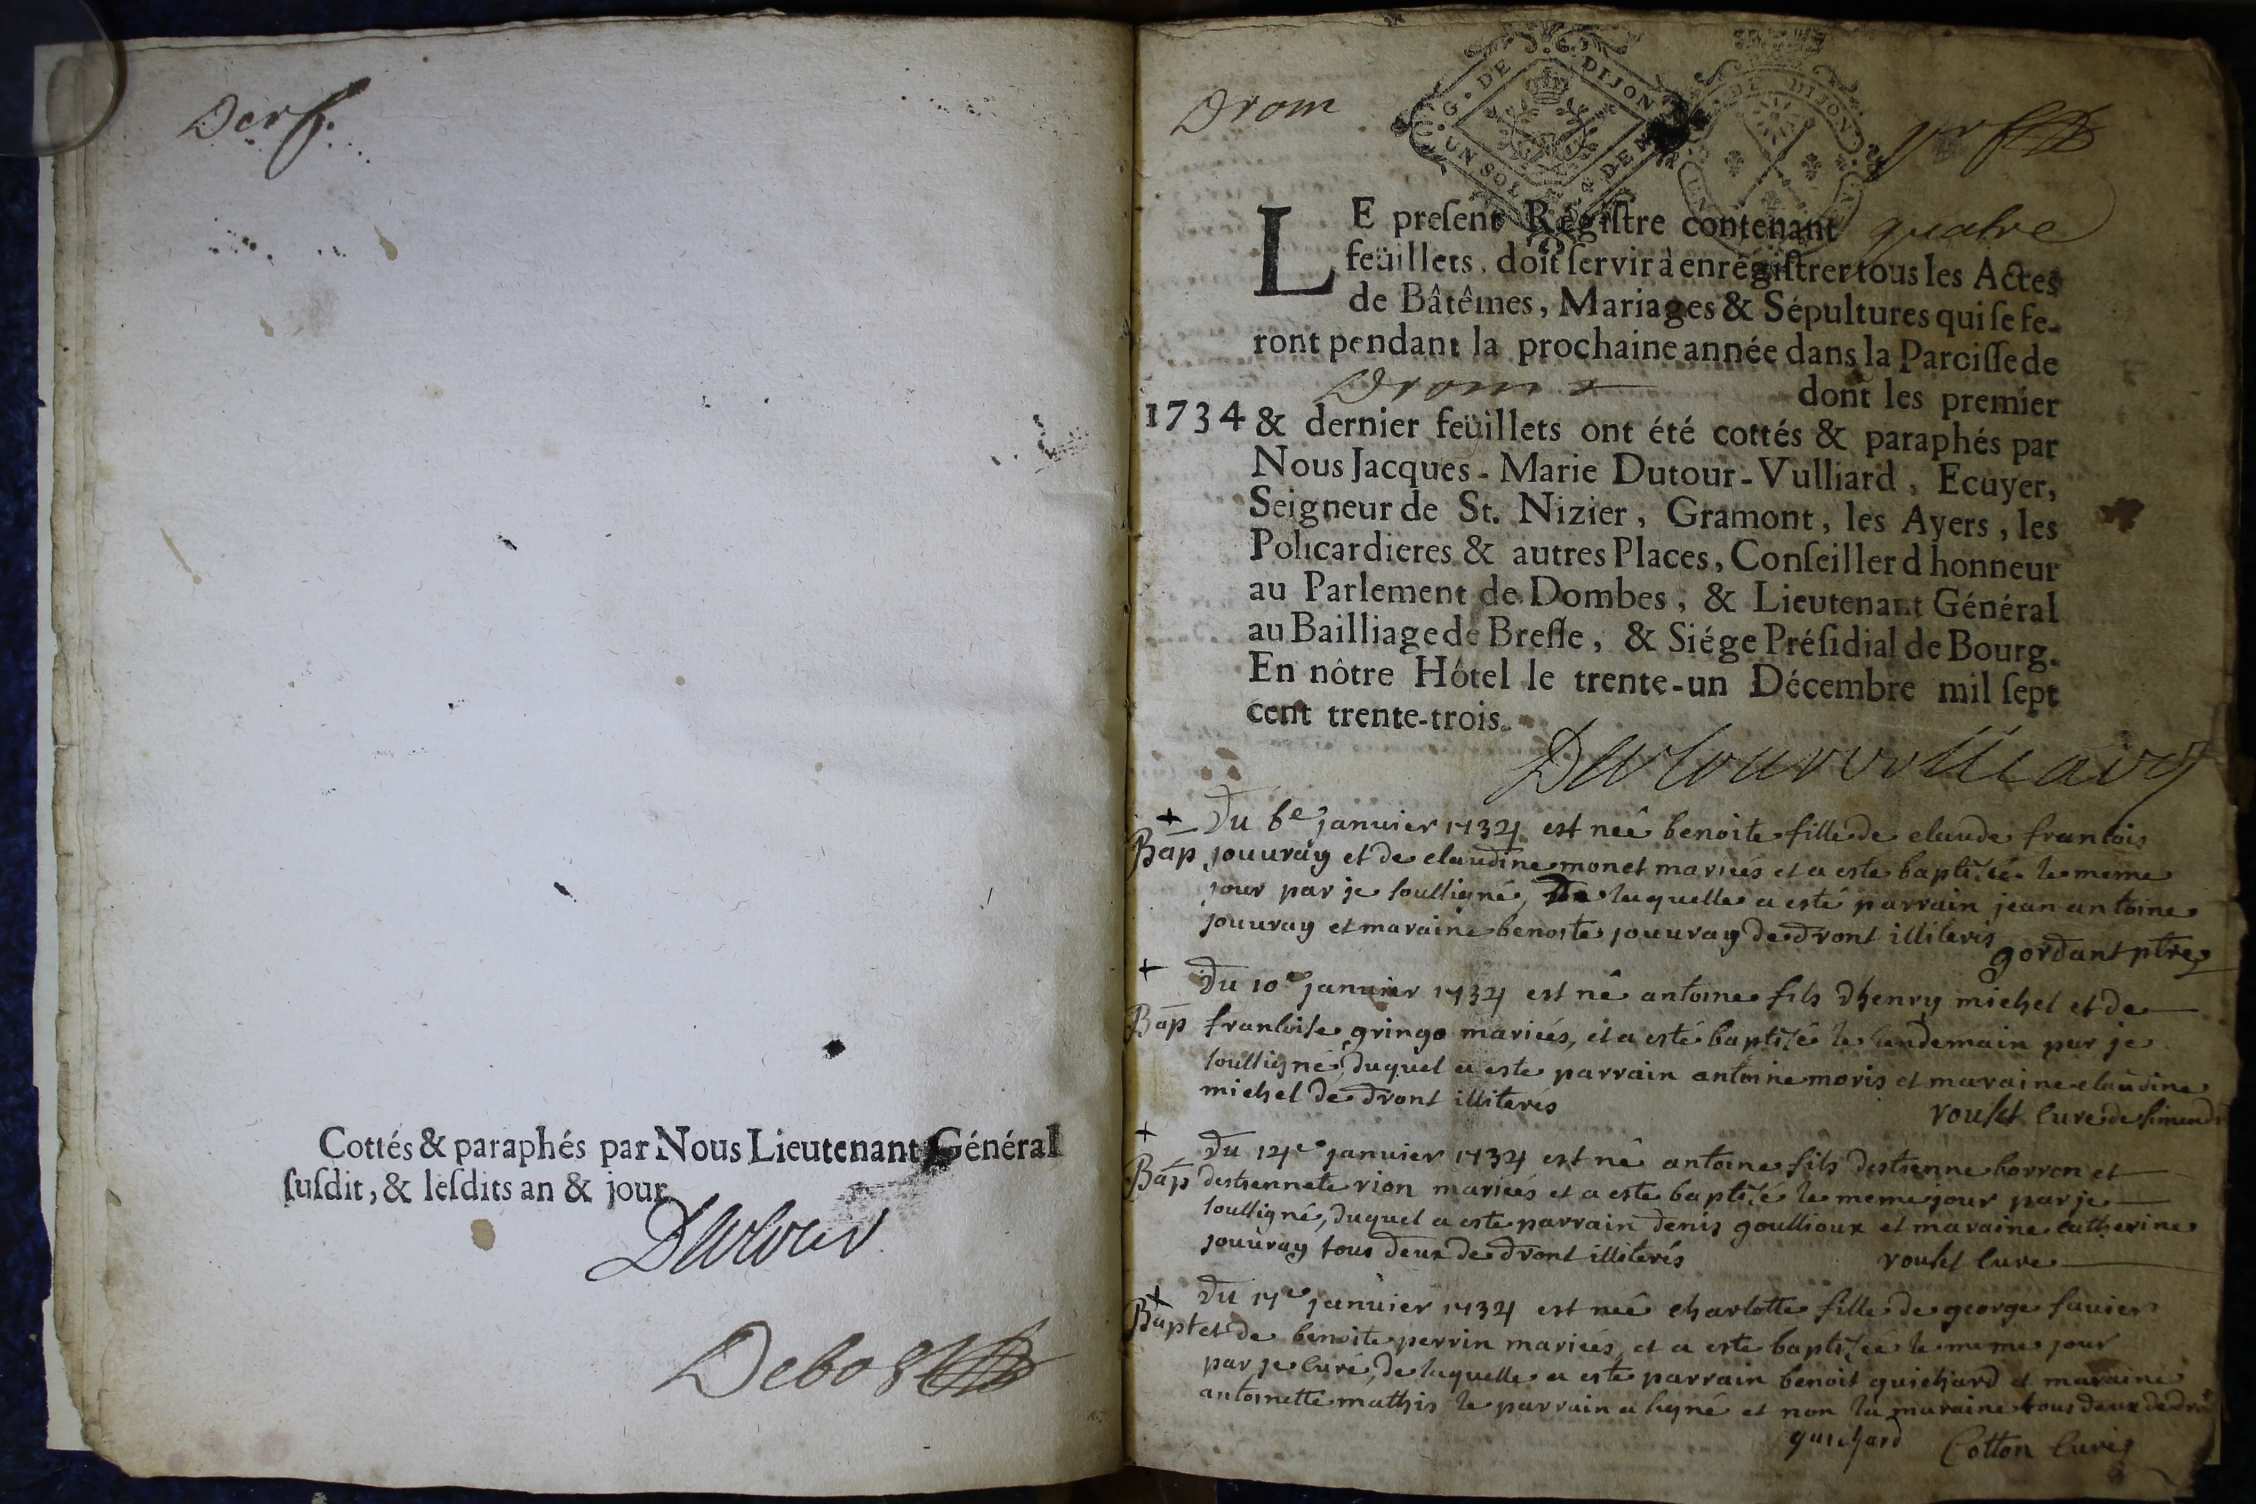 Derf.
Cottés & paraphés par Nous Lieutenant Général
ſuſdit, & leſdits an & jour
Dutour
Debost
Drom
G. DE DIJON
UN SOL & DEN
DE DIJON
LE preſent Régiſtre contenant quatre
feüillets, doit ſervir à enrégiſtrer tous les Actes
de Bâtêmes, Mariages & Sépultures qui ſe fe-
ront pendant la prochaine année dans la Paroiſſe de
Drom dont les premier
1734 & dernier feüillets ont été cottés & paraphés par
Nous Jacques-Marie Dutour-Vulliard, Ecuyer,
Seigneur de St. Nizier, Gramont, les Ayers, les
Policardieres & autres Places, Conſeiller d honneur
au Parlement de Dombes, & Lieutenant Général
au Bailliage de Breſſe, & Siége Préſidial de Bourg.
En nôtre Hôtel le trente-un Décembre mil ſept
cent trente-trois.
Dutourvulliard
+ Du 6e janvier 1734 est neê benoite fille de claude francois
Bap jouuray et de claudine monet mariés et a este baptizée le meme
jour par je soussigné, de laquelle a esté parrain jean antoine
jouuray et maraine benoite jouuray de dront illiterés
gordant ptre
+ Du 10e janvier 1734 est nê antoine fils dhenry michel et de
Bap francoise gringo mariés, et a esté baptizé le lendemain par je
soussigné, duquel a este parrain antoine moris et maraine claudine
michel de dront illiterés
rouset curé de simandr
+ Du 14e janvier 1734 est nê antoine fils destienne borron et
Bap destiennete rion mariés et a este baptizé le meme jour par je
soussigné, duquel a este parrain denis goullioux et maraine catherine
jouuray tous deux de dront illiterés rouset curé
+ Du 17e janvier 1734 est neê charlotte fille de george fauier
Bapt et de benoite perrin mariés, et a este baptizée le meme jour
par je curé, de laquelle a este parrain benoit guichard et maraine
antoinette mathis le parrain a signé et non la maraine tous deux de dront
guichard Cotton curé